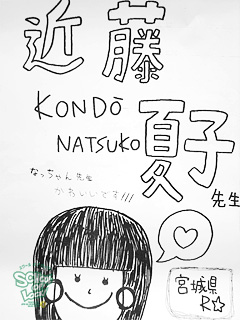 近藤
KONDŌ
夏子
NATSUKO
先生
なっちゃん先生
かわいいです!!!
宮城県
R☆